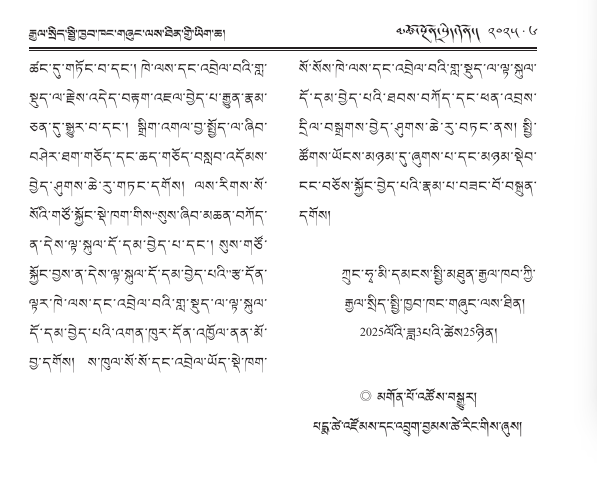 རྒྱལ་སྲིད་སྤྱི་ཁྱབ་ཁང་གཞུང་ལས་ཐིན་གྱི་ཡིག་ཆ།
༢༠༢༥ · ༦
ཚང་དུ་གཏོང་བ་དང་། ཁེ་ལས་དང་འབྲེལ་བའི་གླ་
སྡུད་ལ་རྗེས་འདེད་བརྟག་འཇལ་བྱེད་པ་རྒྱུན་རྣམ་
ཅན་དུ་སྒྱུར་བ་དང་། སྒྲིག་འགལ་བྱ་སྤྱོད་ལ་ཞིབ་
བཤེར་ཐག་གཅོད་དང་ཆད་གཅོད་བསླབ་འདོམས་
བྱེད་ཤུགས་ཆེ་རུ་གཏང་དགོས། ལས་རིགས་སོ་
སོའི་གཙོ་སྐྱོང་སྡེ་ཁག་གིས་“སུས་ཞིབ་མཆན་བཀོད་
ན་དེས་ལྟ་སྐུལ་དོ་དམ་བྱེད་པ་དང་། སུས་གཙོ་
སྐྱོང་བྱས་ན་དེས་ལྟ་སྐུལ་དོ་དམ་བྱེད་པའི་”རྩ་དོན་
ལྟར་ཁེ་ལས་དང་འབྲེལ་བའི་གླ་སྡུད་ལ་ལྟ་སྐུལ་
དོ་དམ་བྱེད་པའི་འགན་ཁུར་དོན་འཁྱོལ་ནན་མོ་
བྱ་དགོས། ས་ཁུལ་སོ་སོ་དང་འབྲེལ་ཡོད་སྡེ་ཁག་
སོ་སོས་ཁེ་ལས་དང་འབྲེལ་བའི་གླ་སྡུད་ལ་ལྟ་སྐུལ་
དོ་དམ་བྱེད་པའི་ཐབས་བཀོད་དང་ཕན་འབྲས་
དྲིལ་བསྒྲགས་བྱེད་ཤུགས་ཆེ་རུ་བཏང་ནས། སྤྱི་
ཚོགས་ཡོངས་མཉམ་དུ་ཞུགས་པ་དང་མཉམ་སྡེབ་
ངང་བཅོས་སྐྱོང་བྱེད་པའི་རྣམ་པ་བཟང་པོ་བསྐྲུན་
དགོས།
ཀྲུང་ཧྭ་མི་དམངས་སྤྱི་མཐུན་རྒྱལ་ཁབ་ཀྱི་
རྒྱལ་སྲིད་སྤྱི་ཁྱབ་ཁང་གཞུང་ལས་ཐིན།
2025ལོའི་ཟླ3པའི་ཚེས25ཉིན།
◎ མགོན་པོ་འཚོས་བསྒྱུར།
པདྨ་ཚེ་འཛོམས་དང་འབྲུག་བྱམས་ཚེ་རིང་གིས་ཞུས།